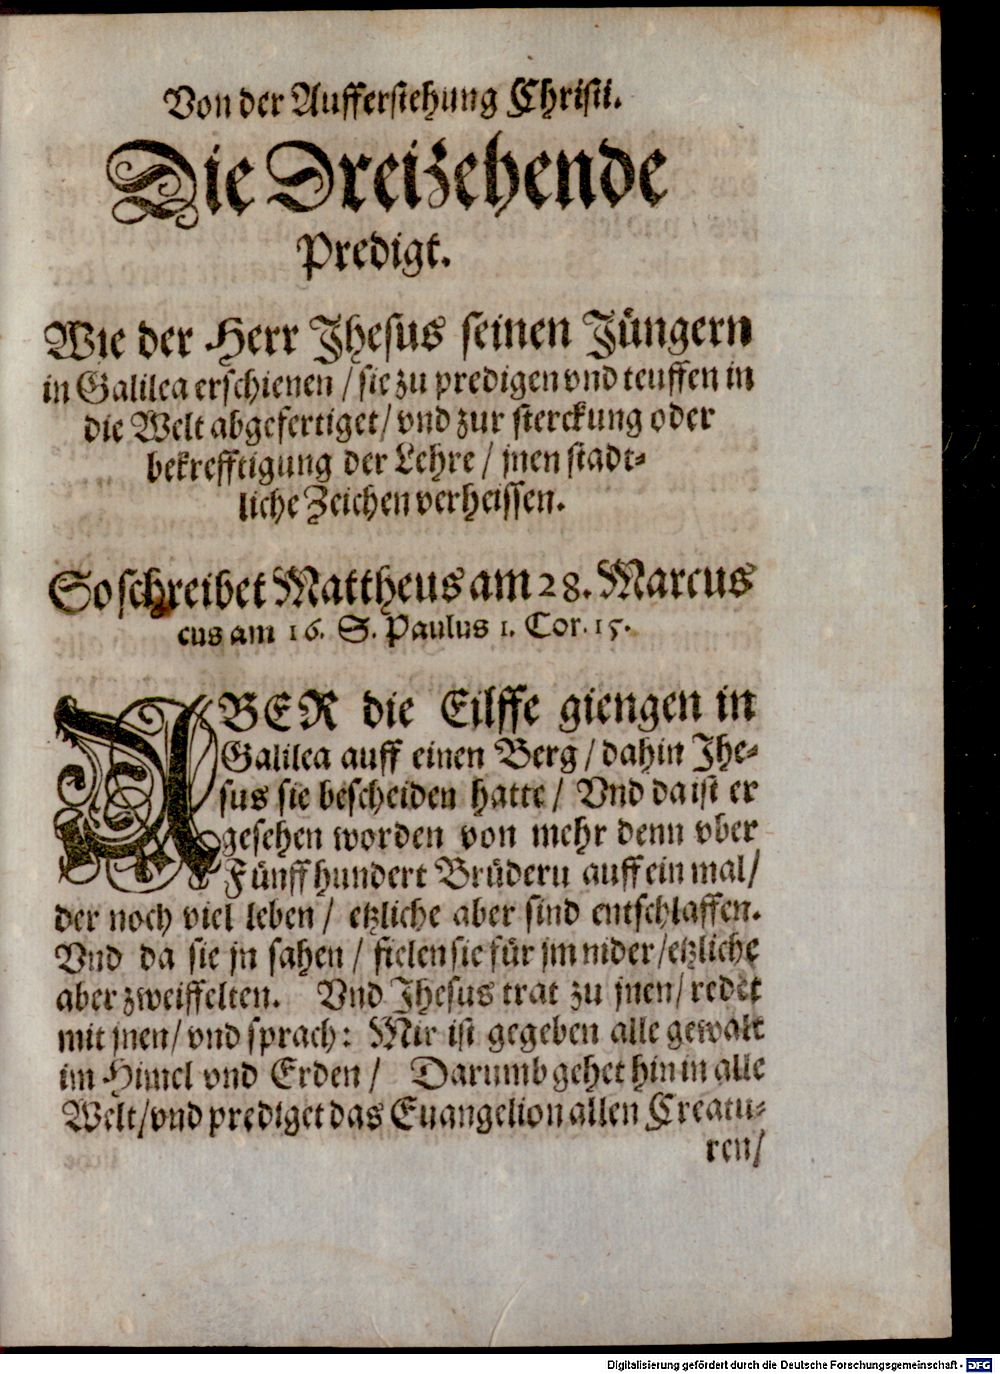 Von der Aufferstehung Christi.
Die Dreizehende
Predigt.
Wie der Herr Jhesus seinen Jüngern
in Galilea erschienen / sie zu predigen vnd teuffen in
die Welt abgefertiget / vnd zur sterckung oder
bekrefftigung der Lehre / jnen stadt-
liche Zeichen verheissen.
So schreibet Mattheus am 28. Marcus
cus am 16. S. Paulus 1. Cor. 15.
ABER die Eilffe giengen in
Galilea auff einen Berg / dahin Jhe-
sus sie bescheiden hatte / Vnd da ist er
gesehen worden von mehr denn vber
Fünff hundert Brüdern auff ein mal /
der noch viel leben / etzliche aber sind entschlaffen.
Vnd da sie jn sahen / fielen sie für jm nider / etzliche
aber zweiffelten. Vnd Jhesus trat zu jnen / redet
mit jnen / vnd sprach: Mir ist gegeben alle gewalt
im Himel vnd Erden / Darumb gehet hin in alle
Welt / vnd prediget das Euangelion allen Creatu-
ren /
Digitalisierung gefördert durch die Deutsche Forschungsgemeinschaft - DFG